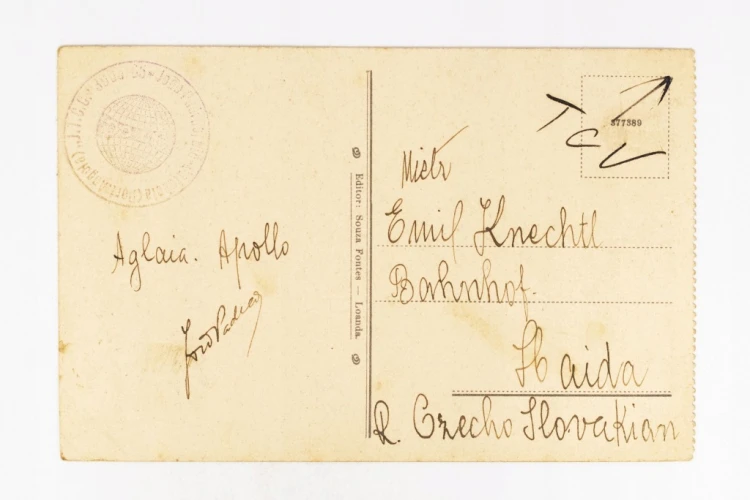 Aglaia. Apollo
Editor: Souza Fontes — Loanda.
377389
T C V
Mistr
Emil Knechtl
Bahnhof.
Haida
R. Czecho Slovakian